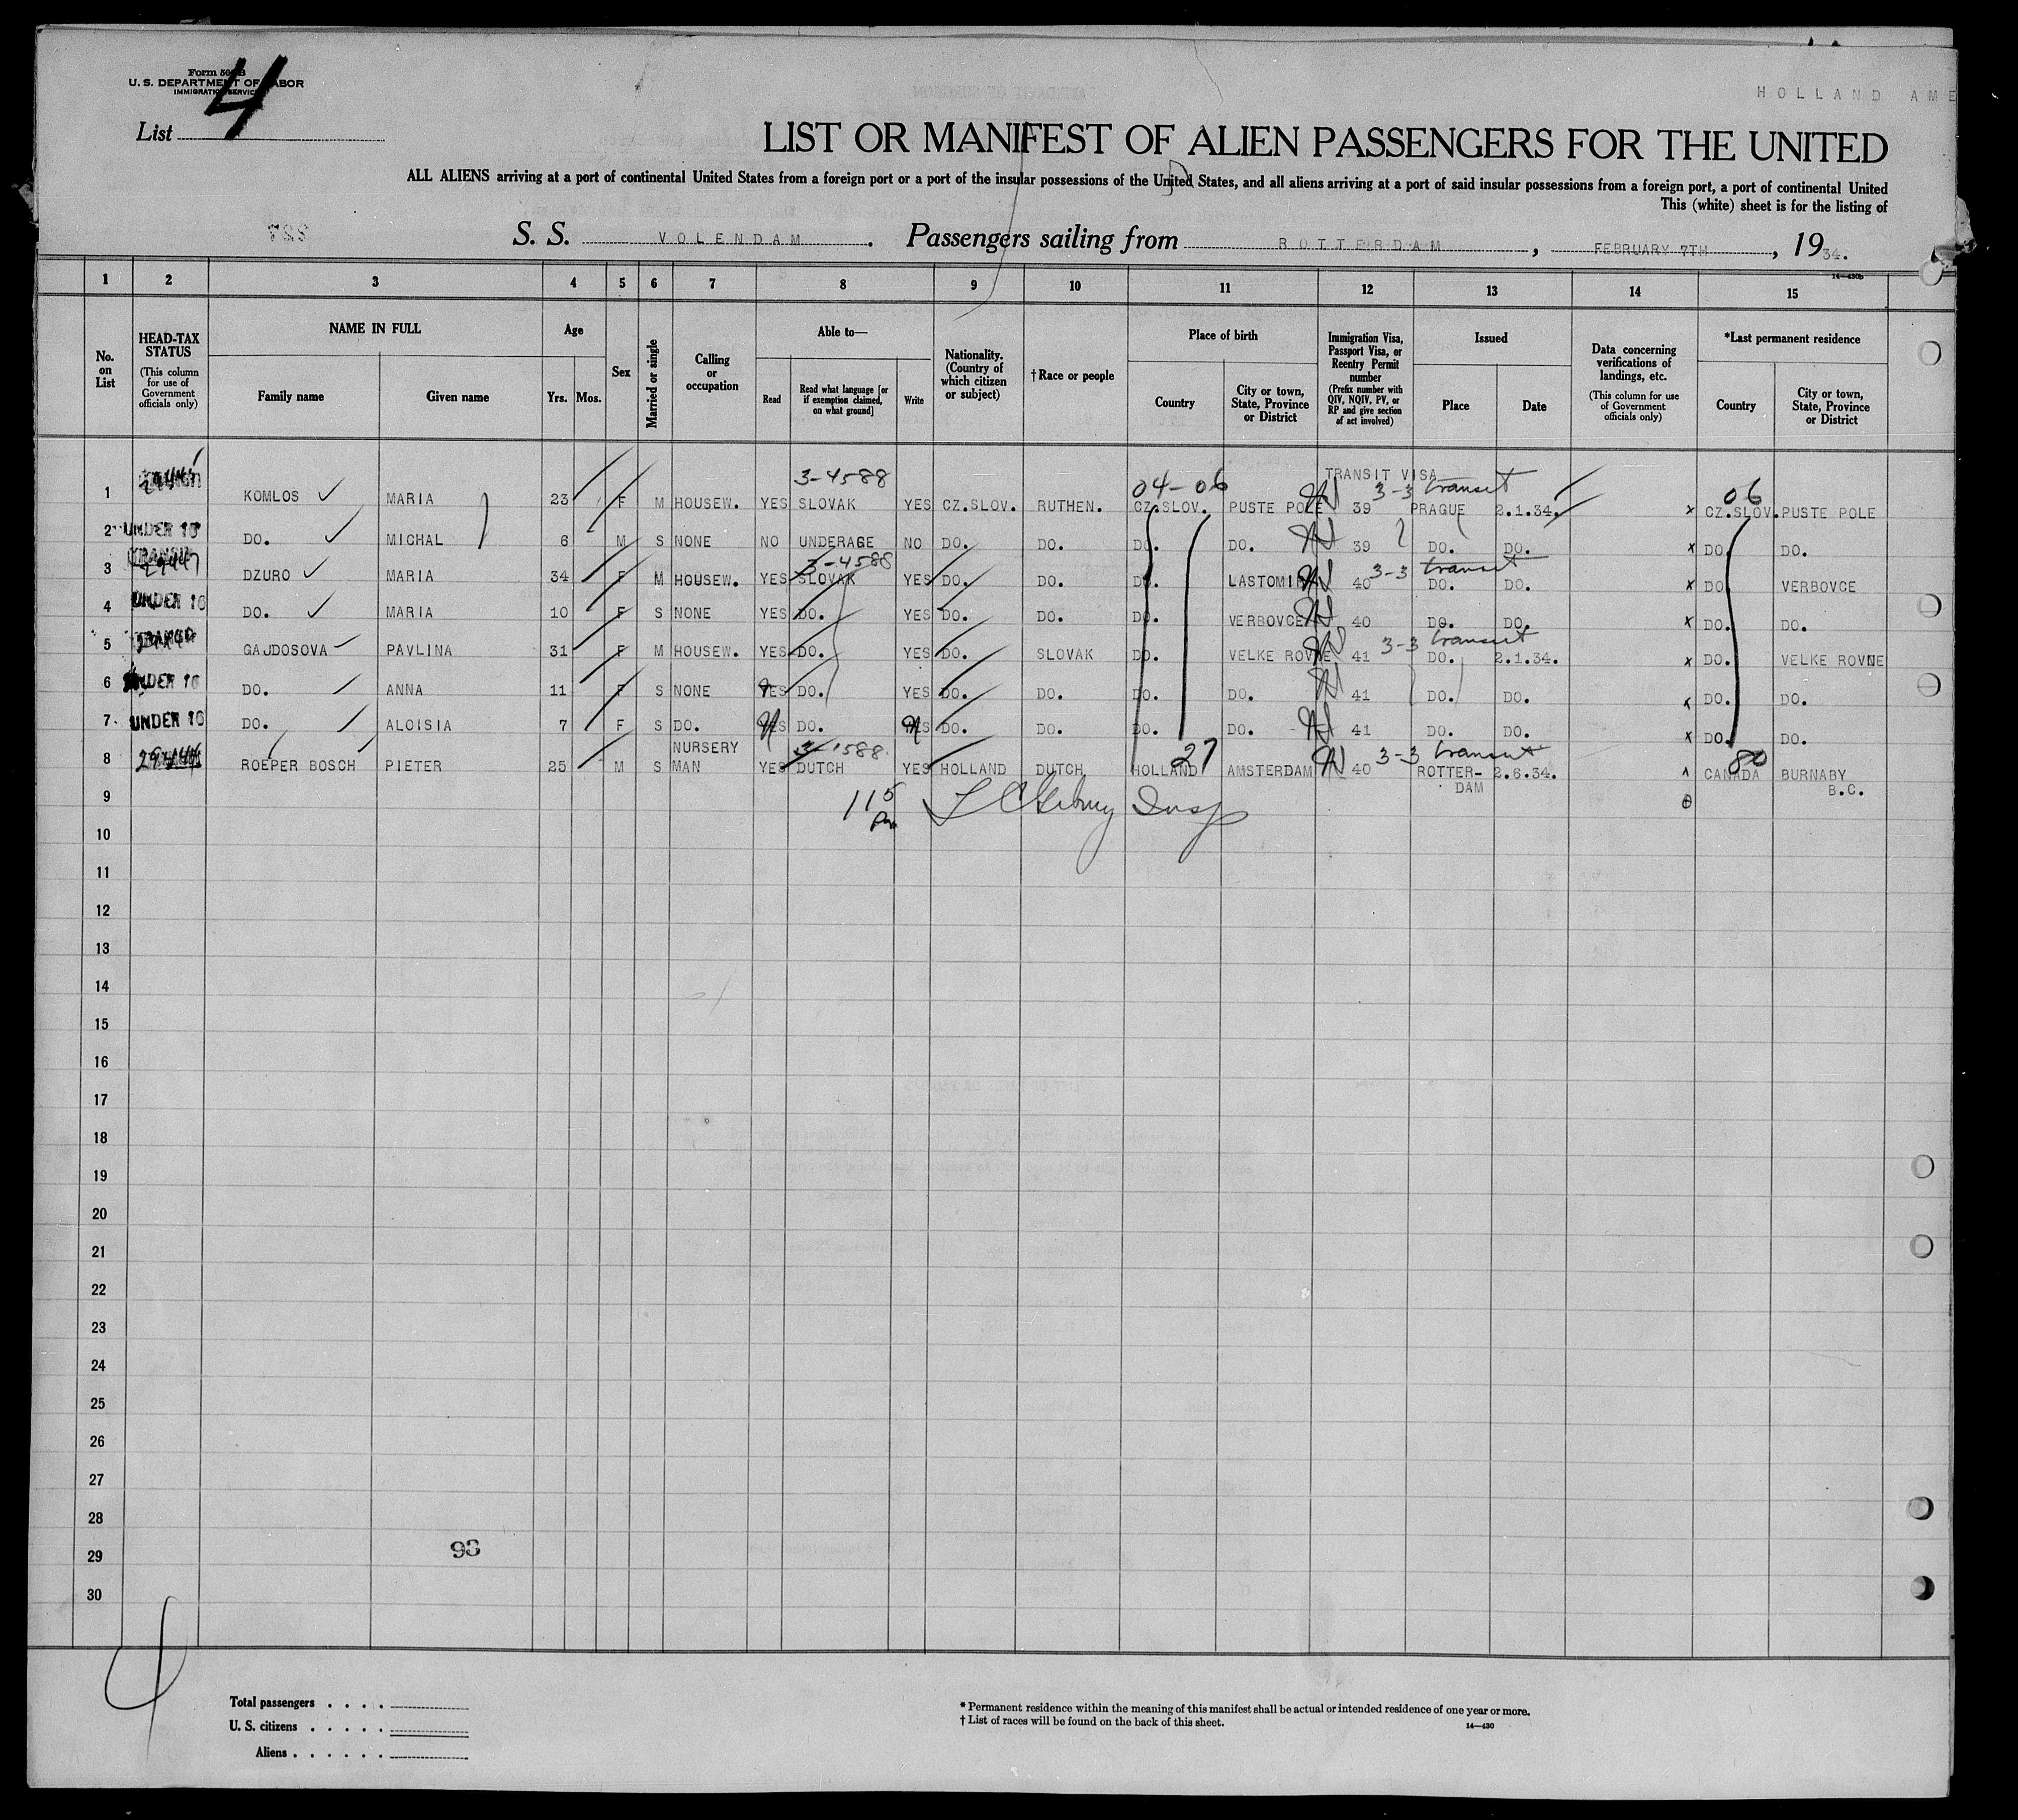 Form 500 B
U. S. DEPARTMENT OF LABOR
IMMIGRATION SERVICE
4
HOLLAND AME
List
LIST OR MANIFEST OF ALIEN PASSENGERS FOR THE UNITED
ALL ALIENS arriving at a port of continental United States from a foreign port or a port of the insular possessions of the United States, and all aliens arriving at a port of said insular possessions from a foreign port, a port of continental United
This (white) sheet is for the listing of
S. S. VOLENDAM. Passengers sailing from ROTTERDAM, FEBRUARY 7TH, 1934.
14—430b
1 2 3 4 5 6 7 8 9 10 11 12 13 14 15
No. on List
HEAD-TAX STATUS (This column for use of Government officials only)
NAME IN FULL
Family name Given name
Age
Yrs. Mos.
Sex
Married or single
Calling or occupation
Able to—
Read Read what language [or if exemption claimed, on what ground] Write
Nationality. (Country of which citizen or subject)
† Race or people
Place of birth
Country City or town, State, Province or District
Immigration Visa, Passport Visa, or Reentry Permit number (Prefix number with QIV, NQIV, PV, or RP and give section of act involved)
Issued
Place Date
Data concerning verifications of landings, etc. (This column for use of Government officials only)
*Last permanent residence
Country City or town, State, Province or District
3-4588 04-06 TRANSIT VISA 3-3 transit 06
1 KOMLOS MARIA 23 F M HOUSEW. YES SLOVAK YES CZ.SLOV. RUTHEN. CZ.SLOV. PUSTE POLE 39 PRAGUE 2.1.34. x CZ.SLOV. PUSTE POLE
2 UNDER 16 DO. MICHAL 6 M S NONE NO UNDERAGE NO DO. DO. DO. DO. 39 DO. DO. x DO. DO.
3-4588 3-3 transit
3 DZURO MARIA 34 F M HOUSEW. YES SLOVAK YES DO. DO. DO. LASTOMIR 40 DO. DO. x DO. VERBOVCE
4 UNDER 16 DO. MARIA 10 F S NONE YES DO. YES DO. DO. DO. VERBOVCE 40 DO. DO. x DO. DO.
3-3 transit
5 GAJDOSOVA PAVLINA 31 F M HOUSEW. YES DO. YES DO. SLOVAK DO. VELKE ROVNE 41 DO. 2.1.34. x DO. VELKE ROVNE
6 UNDER 16 DO. ANNA 11 F S NONE YES DO. YES DO. DO. DO. DO. 41 DO. DO. x DO. DO.
7 UNDER 16 DO. ALOISIA 7 F S DO. YES DO. YES DO. DO. DO. DO. 41 DO. DO. x DO. DO.
NURSERY 3-1588 27 3-3 transit 80
8 ROEPER BOSCH PIETER 25 M S MAN YES DUTCH YES HOLLAND DUTCH HOLLAND AMSTERDAM 40 ROTTER- 2.6.34. CANADA BURNABY
DAM B.C.
9 11 5 Insp
10
11
12
13
14
15
16
17
18
19
20
21
22
23
24
25
26
27
28
29 93
30
Total passengers
U. S. citizens
Aliens
* Permanent residence within the meaning of this manifest shall be actual or intended residence of one year or more.
† List of races will be found on the back of this sheet.
14—430